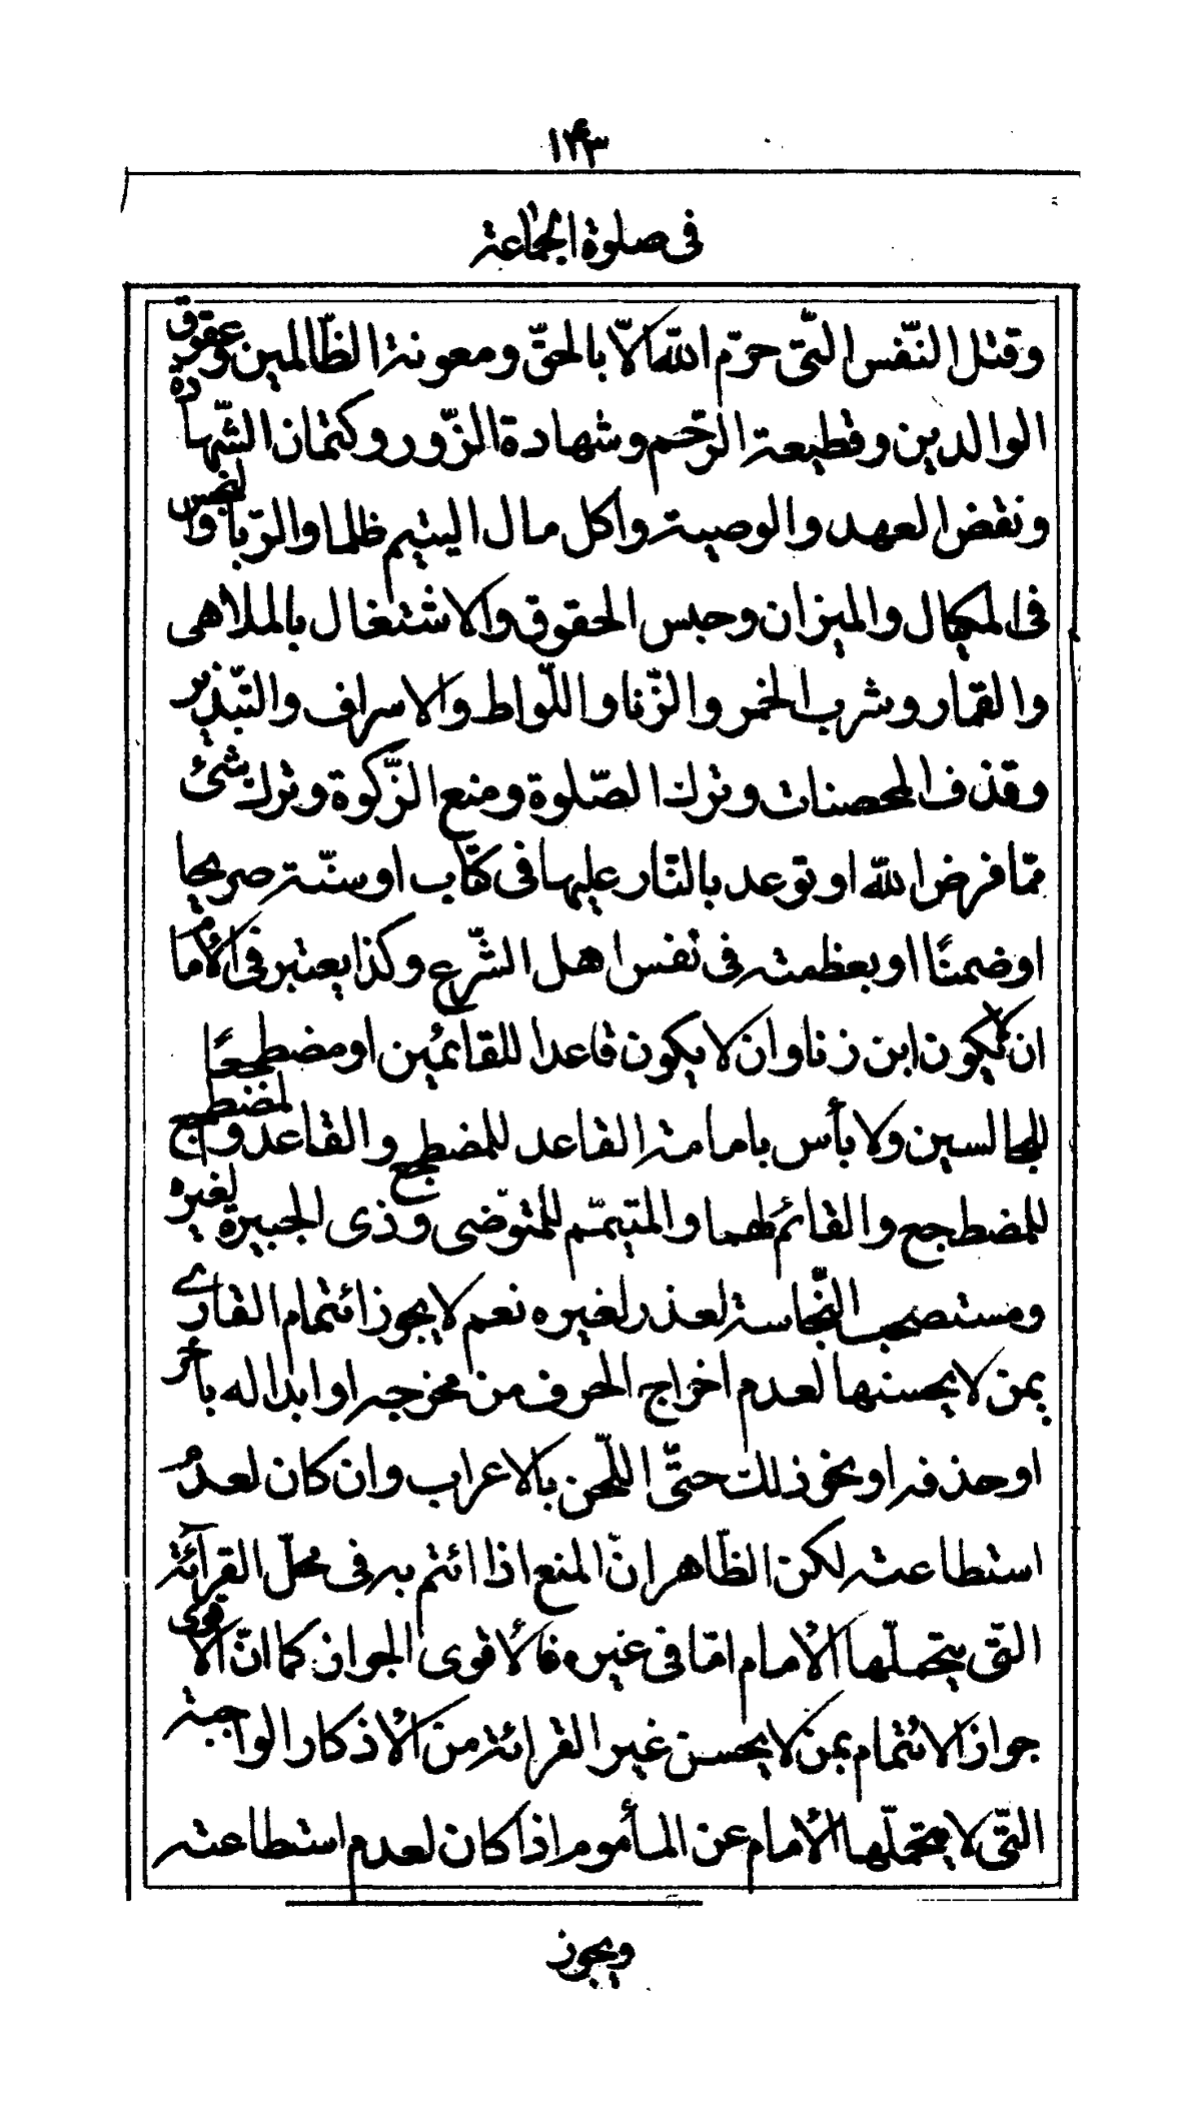 ١٤٣
فی صلوة الجماعة
وقتل النّفس الّتی حرّم اللّه الّا بالحقّ ومعونة الظّالمین وعقوق
الوالدین وقطیعة الرّحم وشهادة الزّور وکتمان الشّهادة
ونقض العهد والوصیة واکل مال الیتیم ظلما والرّبا والبخس
فی المکیال والمیزان وحبس الحقوق والاشتغال بالملاهی
والقمار وشرب الخمر والزّنا واللّواط والاسراف والتّبذیر
وقذف المحصنات وترك الصّلوة ومنع الزّکوة وترك شیٔ
ممّا فرض اللّه او توعد بالنّار علیها فی کتاب او سنّة صریحا
او ضمنًا او بعظمته فی نفس اهل الشّرع وکذا یعتبر فی الأمام
ان لایکون ابن زنا وان لا یکون قاعدا للقائمین او مضطجعًا
للجالسین ولا بأس بامامة القاعد للمضطجع والقاعد والمضطجع
للمضطجع والقائم لهما والمتیمّم للمتوّضی وذی الجبیرة لغیره
ومستصحب النّجاسة لعذر لغیره نعم لا یجوز ائتمام القاری
بمن لا یحسنها لعدم اخراج الحرف من مخرجه او ابداله بأخر
او حذفه او نحو ذلك حتّی اللّحن بالاعراب وان کان لعدم
استطاعته لکن الظّاهر انّ المنع اذا ائتم به فی محلّ القرآئة
الّتی یتحملّها الأمام امّا فی غیره فالأقوی الجواز کما انّ الاقوی
جواز الائتمام بمن لا یحسن غیر القرائة من الأذکار الواجبة
الّتی لا یتحملّها الأمام عن المأموم اذا کان لعدم استطاعته
ویجوز